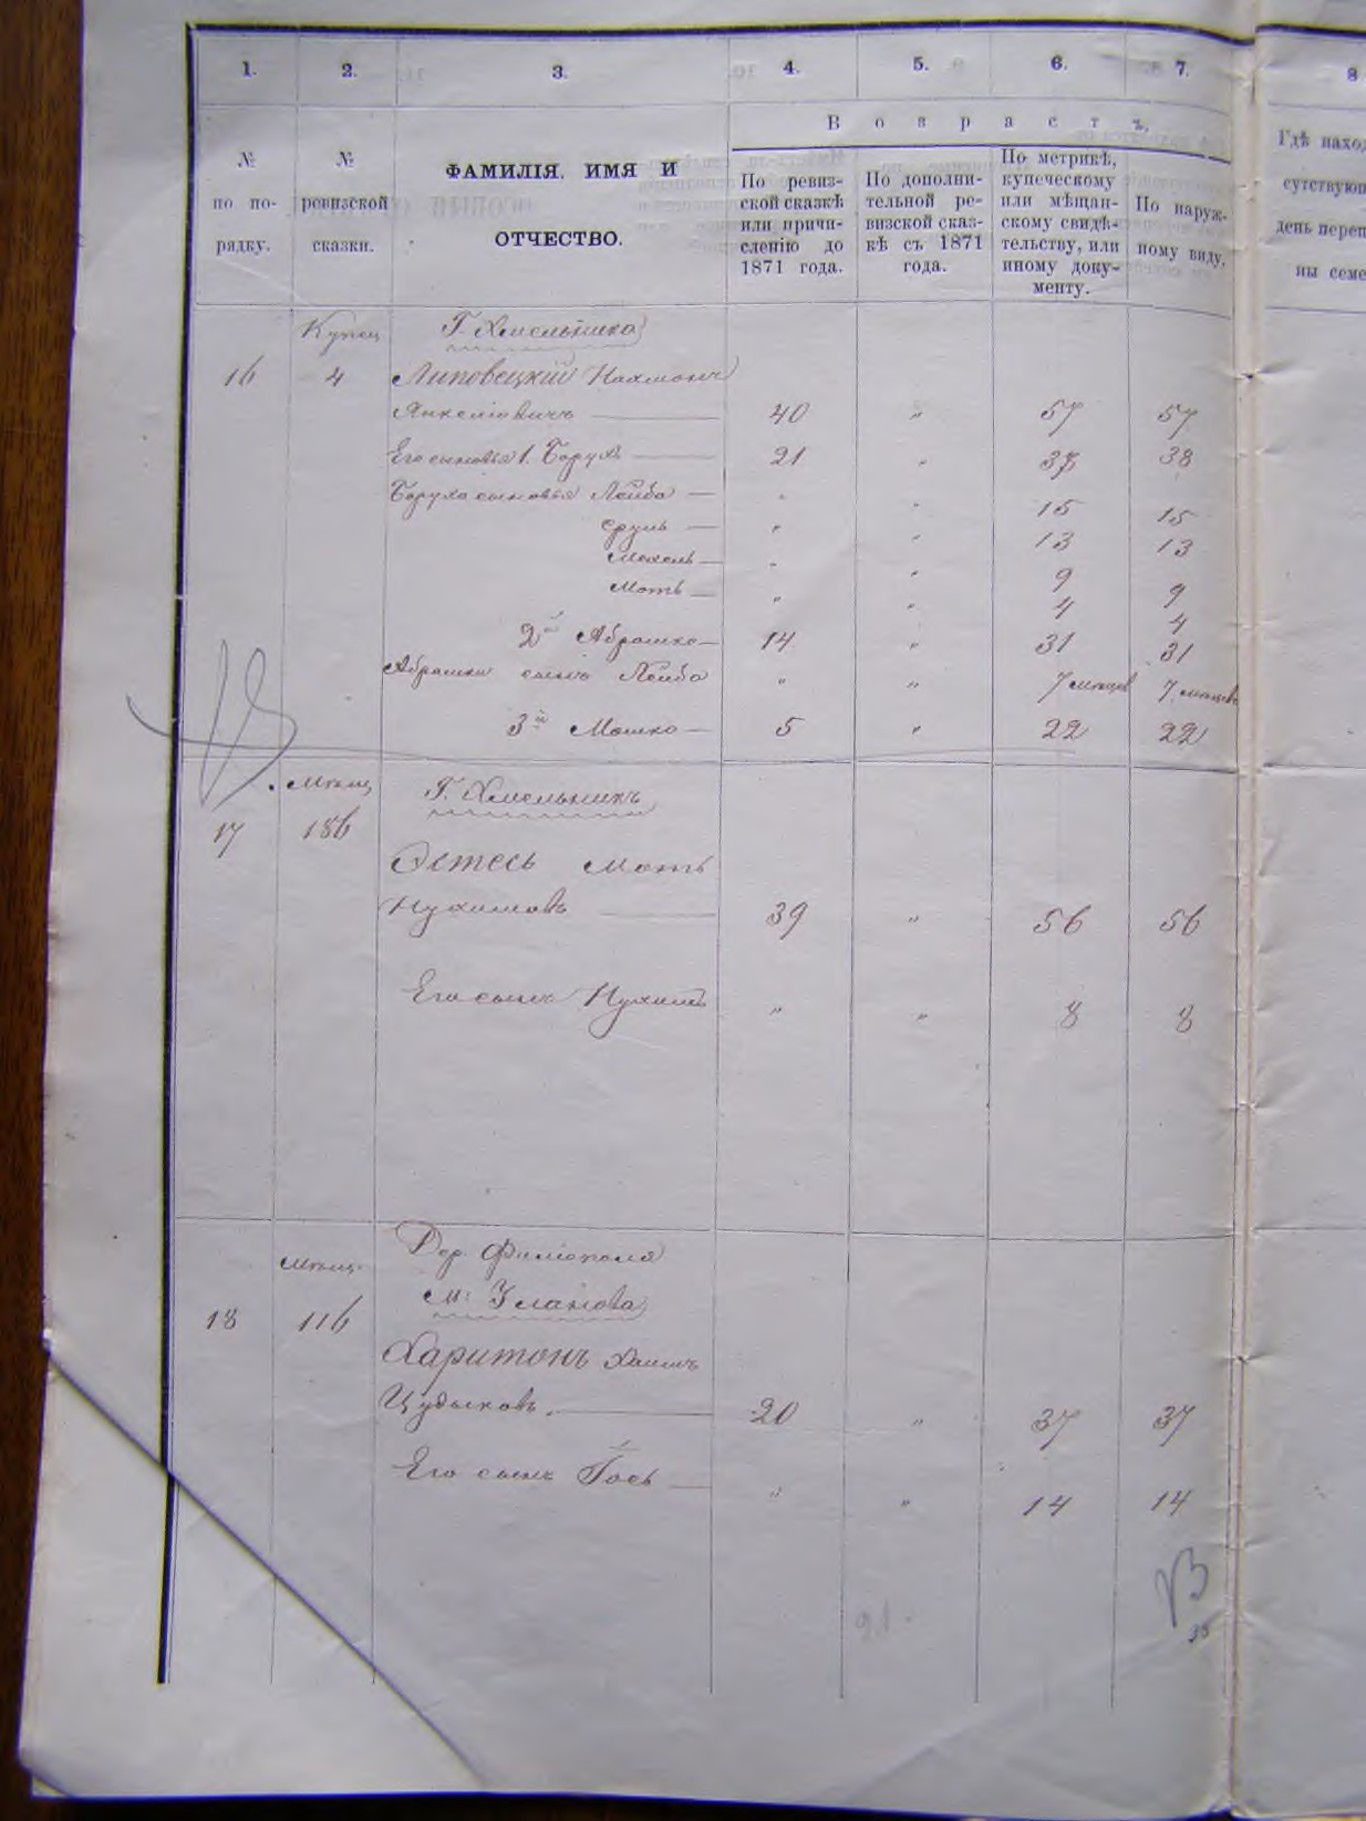 1. 2. 3. 4. 5. 6. 7. 8
Возрастъ.
№ по по-рядку.
№ ревизской сказки.
ФАМИЛІЯ, ИМЯ И
ОТЧЕСТВО.
По ревиз-
ской сказкѣ
или причи-
сленію до
1871 года.
По дополни-
тельной ре-
визской сказ-
кѣ съ 1871
года.
По метрикѣ,
купеческому
или мѣщан-
скому свидѣ-
тельству, или
иному доку-
менту.
По наруж-
ному виду.
Гдѣ наход
сутствующ
день переп
ны семе
Купец Г. Хмельника
16 4 Липовецкій Нахманъ
Янкеліовичъ 40 " 57 57
Его сыновья 1. Борухъ 21 " 38
Боруха сыновья Лейба " " 15 15
Сруль " " 13 13
Мехель " " 9 9
Моть " " 4 4
2й Абрашко 14 " 31 31
Абрашки сынъ Лейба " " 7 мѣсяцев 7 мѣсяцевъ
3й Мошко 5 " 22 22
Мѣщ Г. Хмельникъ
17 186
Эстесь Моть
Нухимовъ 39 " 56 56
Его сынъ Нухимъ " " 8 8
Мѣщ. Дер. Филіополя
м: Уланова
18 116
Харитонъ Хаимъ
Цудыковъ. 20 " 37 37
Его сынъ Іось " " 14 14
21.